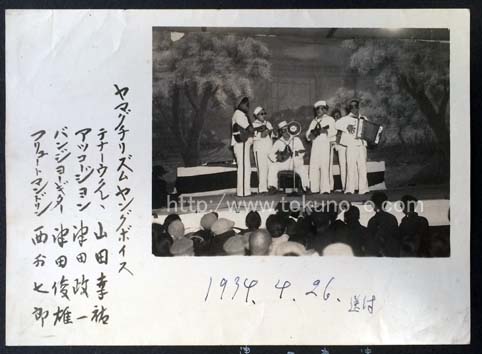 ヤマグチリズムヤングボイス
テナーウクレ、山田幸祐
アツコージョン 津田政一
バンジョーギター 津田俊雄
フリュートマンドリン 西お七郎
http://www.tokuno-e.com
1934. 4. 26.